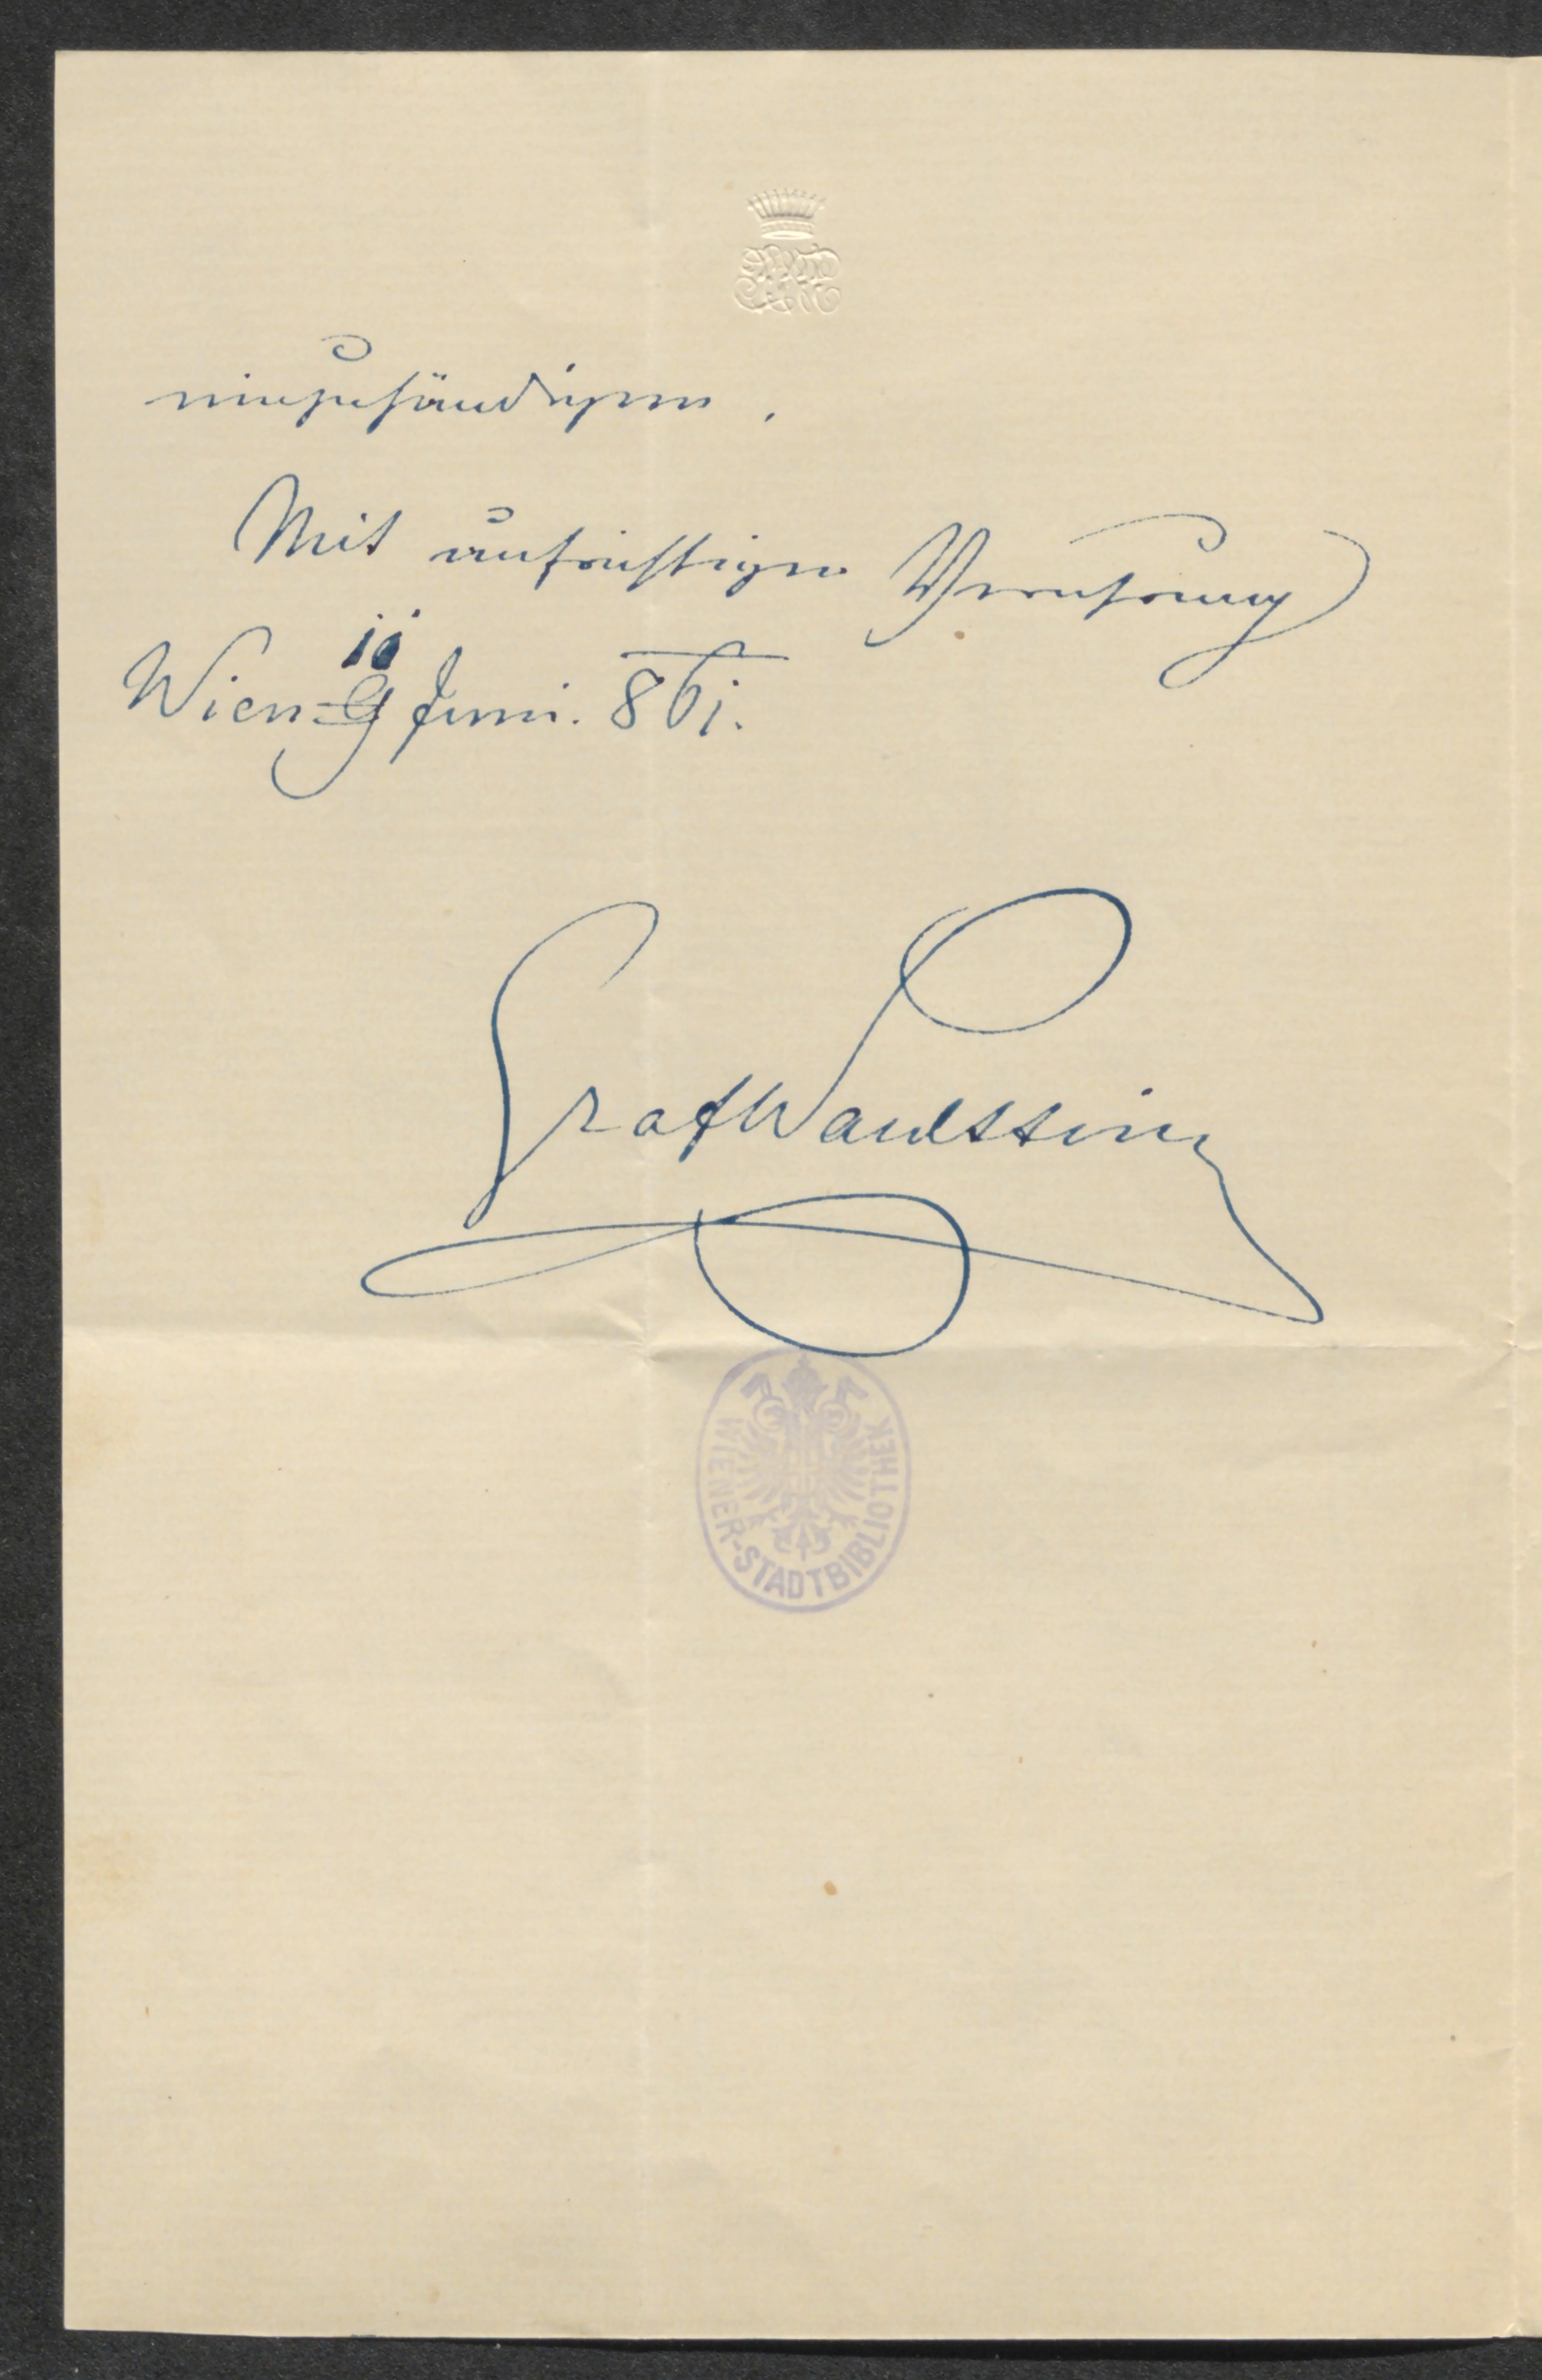 einzuhändigen.
Mit aufrichtiger Verehrung
11
Wien 9 Juni. 861.
Graf Waldstein
WIENER-STADTBIBLIOTHEK